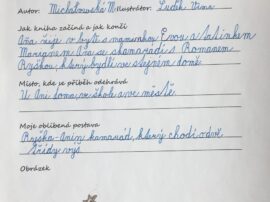 Autor: Michałowski M Ilustrátor: Luděk Vimr
Jak kniha začíná a jak končí
Iva žije v bytě s maminkou Evou a tatínkem
Marianem Iva se skamarádí s Romanem
Ryškou, který bydlí ve stejném domě
Místo, kde se příběh odehrává
U Ivi doma, ve škole a ve městě.
Moje oblíbená postava
Ryška - Ivin kamarád, který chodí o dvě
třídy výš.
Obrázek